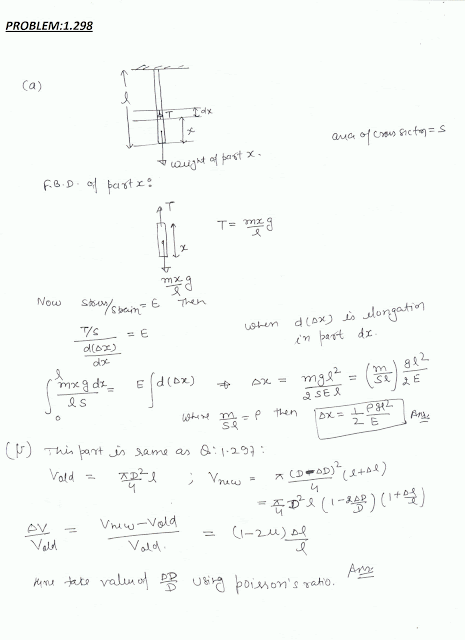 PROBLEM:1.298
(a)
l
T
dx
x
area of cross section = S
weight of part x.
F.B.D. of part x:
T
x
T = mx/l g
mx/l g
Now stress/strain = E then
(T/S) / (d(Δx)/dx) = E
when d(Δx) is elongation
in part dx.
∫₀ˡ mxg dx / lS = E ∫ d(Δx) ⇒ Δx = mgl²/2SEl = (m/Sl) gl²/2E
where m/Sl = ρ then Δx = 1/2 ρgl²/E Ans.
(b) This part is same as Q:1.297:
Vold = πD²/4 l ; Vnew = π(D-ΔD)²/4 (l+Δl)
= π/4 D² l (1-2ΔD/D) (1+Δl/l)
ΔV/Vold = Vnew-Vold/Vold. = (1-2μ) Δl/l
take value of ΔD/D using poisson's ratio. Ans